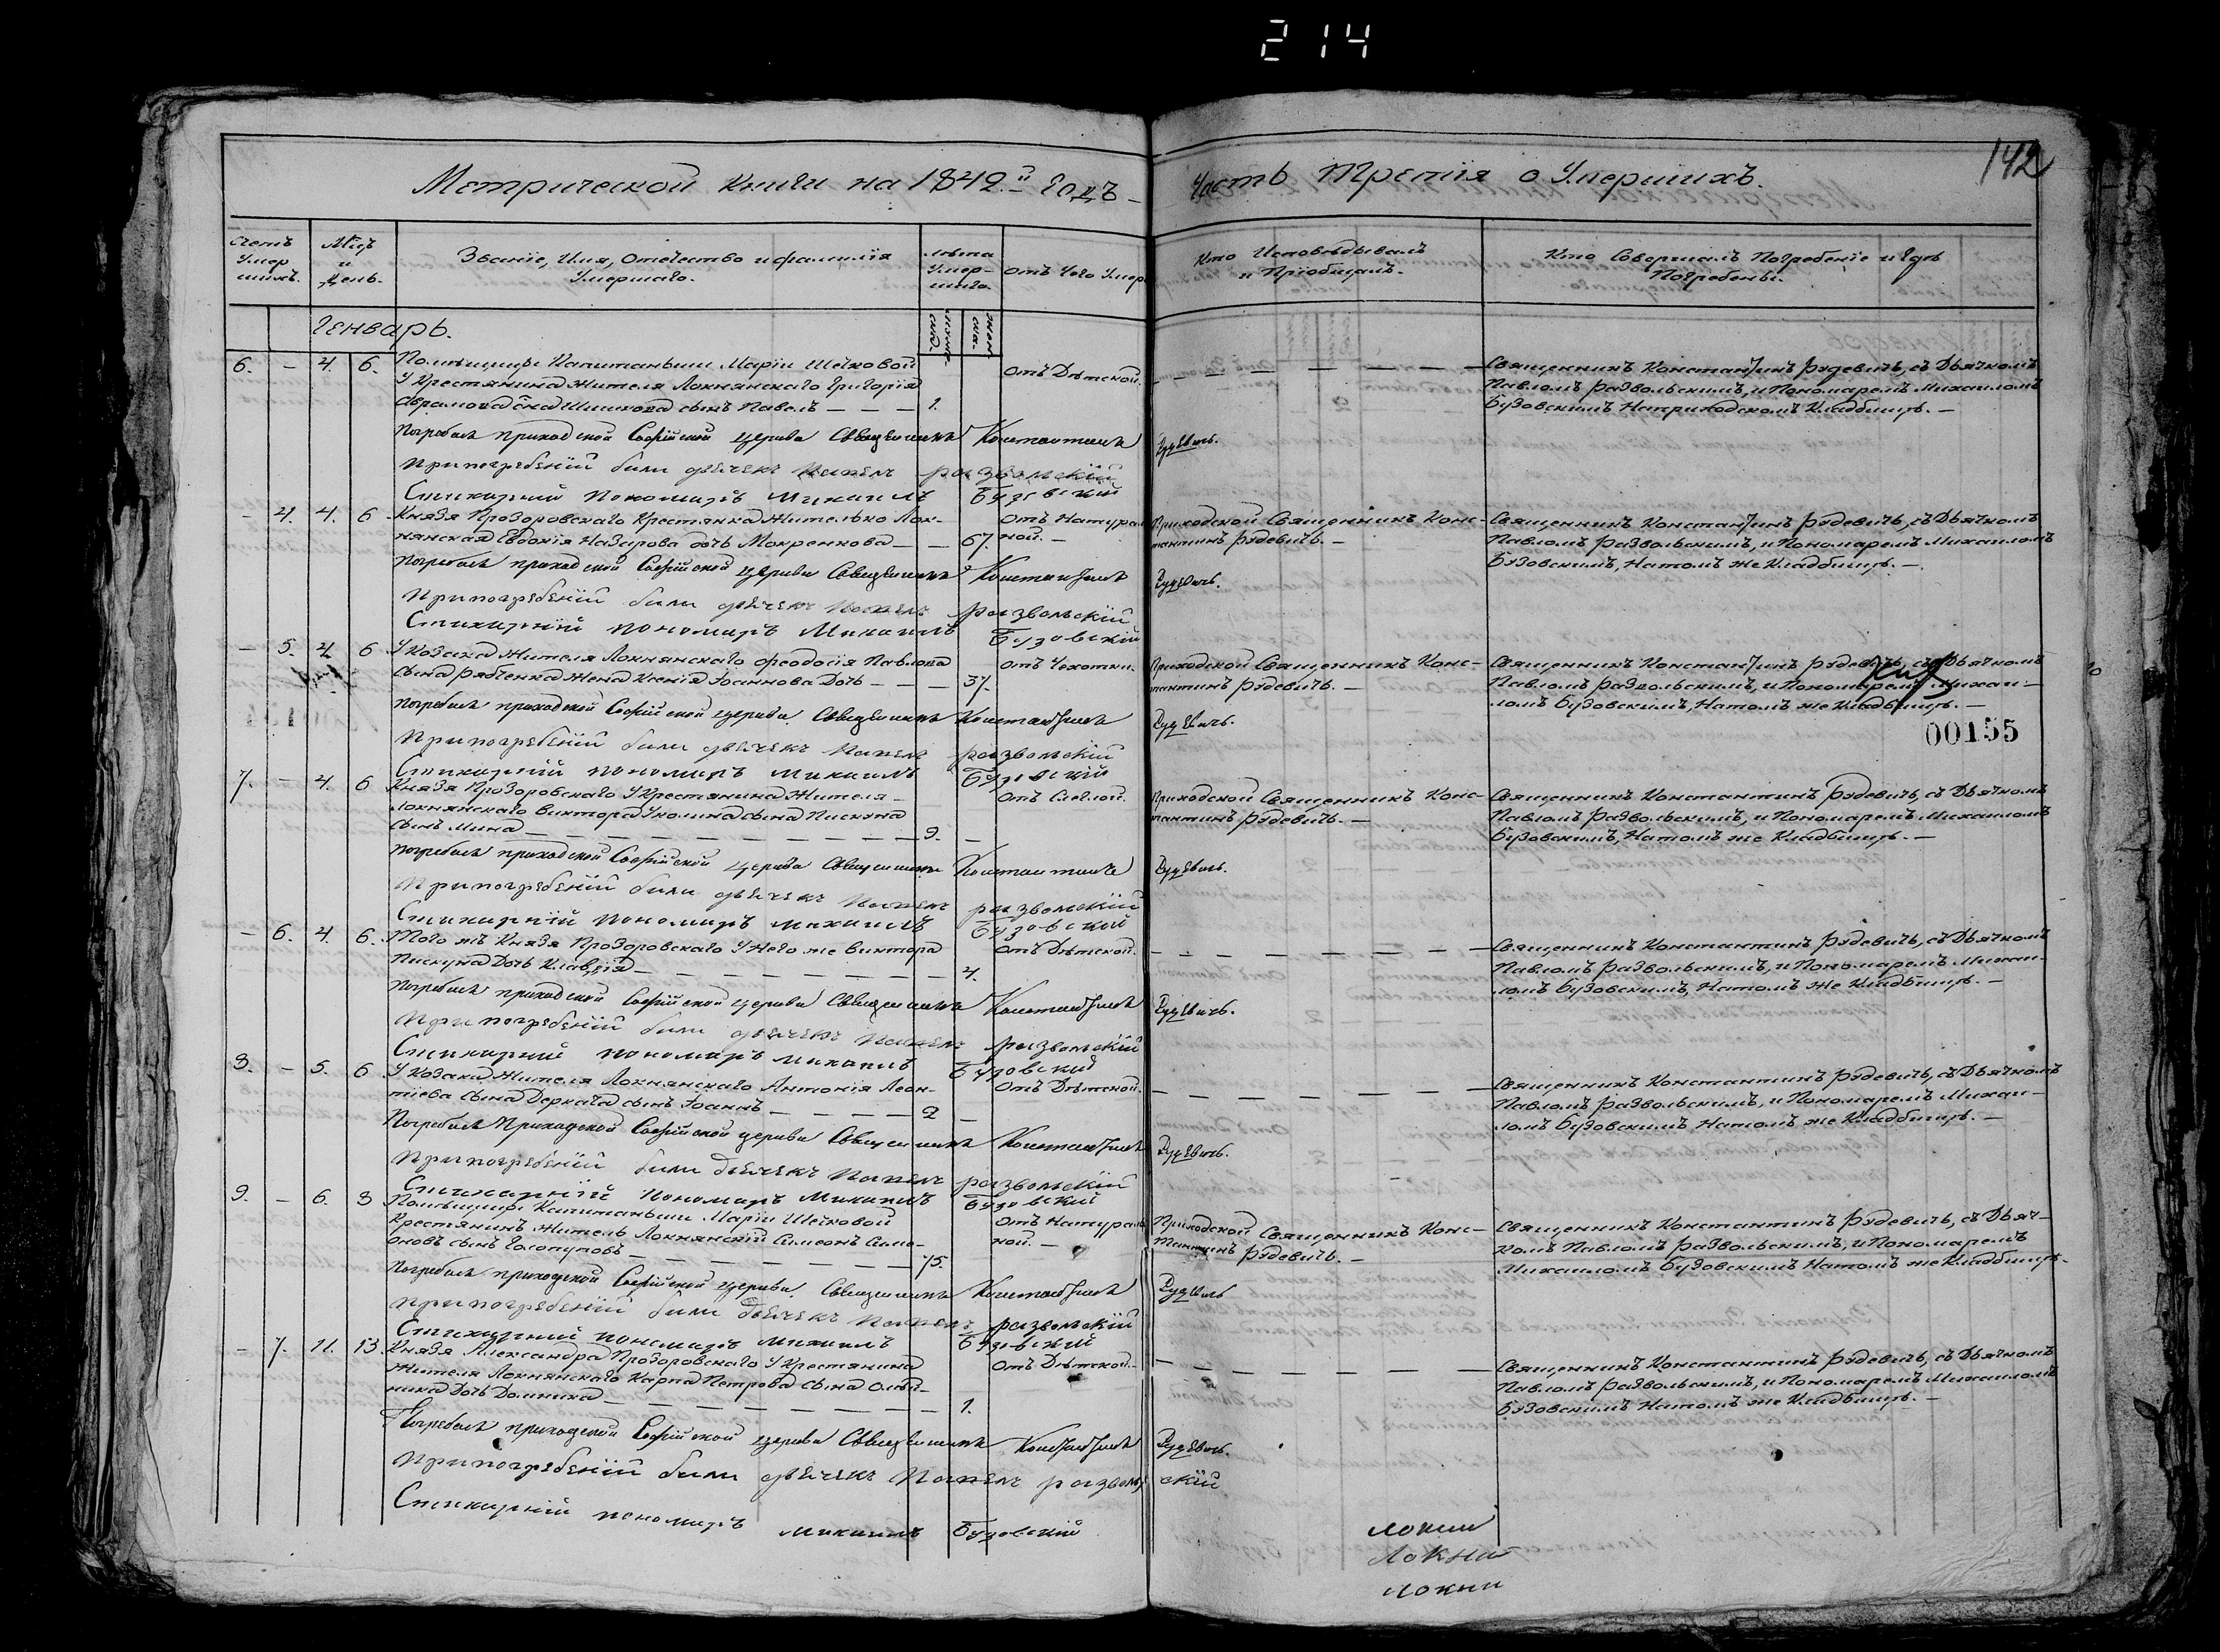 214
142
Метрической книги на 1842.й Годъ –
Часть Третія о Умершихъ.
Счетъ Умер шихъ.
Мцъ и День.
Званіе, Имя, Отечество и фамилія Умершаго.
лѣта Умер- шаго.
Отъ Чего Умер.
Кто Исповѣдывалъ и Пріобщалъ.
Кто Совершалъ Погребеніе и Гдѣ Погребены.
Генварь.
6. – 4. 6. Помѣщицы Капитаньши Маріи Шечковой
У Крестянина Жителя Локнянскаго Григорія
Аврамова сна Шишкова сынъ Павелъ – – – 1.
Отъ Дѣтской.
Священникъ Константинъ Рудевичъ, съ Дьячкомъ
Павломъ Развольскимъ, и Пономаремъ Михаиломъ
Бузовскимъ На приходскомъ Кладбищѣ. –
Погребалъ приходской Софійской церкви Священникъ Константинъ Рудевичъ.
При погребеніи были дьячекъ Павелъ Развольскій
Стихарній пономарь Михаилъ Бузовский
– 4. 4. 6 Князя Прозоровскаго Крестянка Жителько Лок-
нянская Евдокія Назарова дочь Мокренкова – – 67.
Отъ Натураль
ной. –
Приходской Священникъ Конс-
тантинъ Рудевичъ. –
Священникъ Константинъ Рудевичъ, съ Дьячкомъ
Павломъ Развольскимъ, и Пономаремъ Михаиломъ
Бузовскимъ, На томъ же Кладбищѣ. –
Погребалъ приходской Софійской церкви Священникъ Константинъ Рудевичъ.
При погребеніи были дьячекъ Павелъ Развольскій
Стихарній пономарь Михаилъ Бузовскій
– 5. 4 6 У Козака Жителя Локнянскаго Феодосія Павлова
сына Рябченка Жена Ксенія Іоаннова Дочь – – – 37.
Отъ Чехотки.
Приходской Священникъ Конс-
тантинъ Рудевичъ. –
Священникъ Константинъ Рудевичъ, съ Дьячкомъ
Павломъ Развольскимъ, и Пономаремъ Михаи-
ломъ Бузовскимъ, На томъ же Кладбищѣ. –
00155
Погребалъ приходской Софійской церкви Священникъ Константинъ Рудевичъ.
При погребеніи были дьячекъ Павелъ Развольскій
Стихарній пономарь Михаилъ Бузовский
7. – 4. 6 Князя Прозоровскаго У Крестянина Жителя –
Локнянскаго Виктора сына Пискуна
сынъ Мина – – – 9. –
Приходской Священникъ Конс-
тантинъ Рудевичъ. –
Священникъ Константинъ Рудевичъ, съ Дьячкомъ
Павломъ Развольскимъ, и Пономаремъ Михаиломъ
Бузовскимъ, На томъ же Кладбищѣ. –
Погребалъ приходской Софійской церкви Священникъ Константинъ Рудевичъ.
При погребеніи были дьячекъ Павелъ Развольскій
Стихарній пономарь Михаилъ Бузовский
– 6. 4. 6. Того жъ Князя Прозоровскаго У Него же Виктора
Пискуна Дочь Клавдія – – – 4.
Отъ Дѣтской.
Священникъ Константинъ Рудевичъ, съ Дьячкомъ
Павломъ Развольскимъ, и Пономаремъ Михаи-
ломъ Бузовскимъ, На томъ же Кладбищѣ. –
Погребалъ приходской Софійской церкви Священникъ Константинъ Рудевичъ.
При погребеніи были дьячекъ Павелъ Развольскій
Стихарній пономарь Михаилъ Бузовский
8. – 5. 6 У Козака Жителя Локнянскаго Антонія Леон-
тіева сына Деркача сынъ Іоаннъ – – – 2 –
Отъ Дѣтской.
Священникъ Константинъ Рудевичъ, съ Дьячкомъ
Павломъ Развольскимъ, и Пономаремъ Михаи-
ломъ Бузовскимъ На томъ же Кладбищѣ. –
Погребалъ Приходской Софійской церкви Священникъ Константинъ Рудевичъ.
При погребеніи были Дьячекъ Павелъ Развольскій
Стихарній Пономарь Михаилъ Бузовский
9. – 6. 8 Помѣщицы Капитаньши Маріи Шечковой
Крестянинъ Житель Локнянскій Симеонъ Симе-
оновъ сынъ Голопуповъ – – – 75.
Отъ Натураль
ной. –
Приходской Священникъ Конс-
тантинъ Рудевичъ. –
Священникъ Константинъ Рудевичъ, съ Дьяч-
комъ Павломъ Развольскимъ, и Пономаремъ
Михаиломъ Бузовскимъ На томъ же Кладбищѣ.
Погребалъ приходской Софійской церкви Священникъ Константинъ Рудевичъ
При погребеніи были Дьячекъ Павелъ Развольскій
Стихарний пономарь Михаилъ Бузовский
– 7. 11. 13. Князя Александра Прозоровскаго У Крестянина
Жителя Локнянскаго Карпа Петрова сына Олей-
ника Дочь Домника – – – 1.
Отъ Дѣтской.
Священникъ Константинъ Рудевичъ, съ Дьячкомъ
Павломъ Развольскимъ, и Пономаремъ Михаиломъ
Бузовскимъ На томъ же Кладбищѣ. –
Погребалъ приходской Софійской церкви Священникъ Константинъ Рудевичъ.
При погребеніи были дьячекъ Павелъ Развольскій
Стихарній пономарь Михаилъ Бузовскій
Локни
Локня
Локни